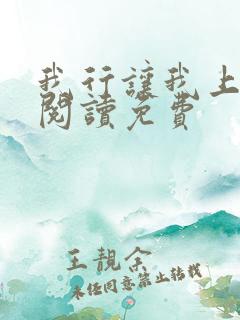 我行讓我上
閱讀免費
王靚余
未經同意禁止轉載